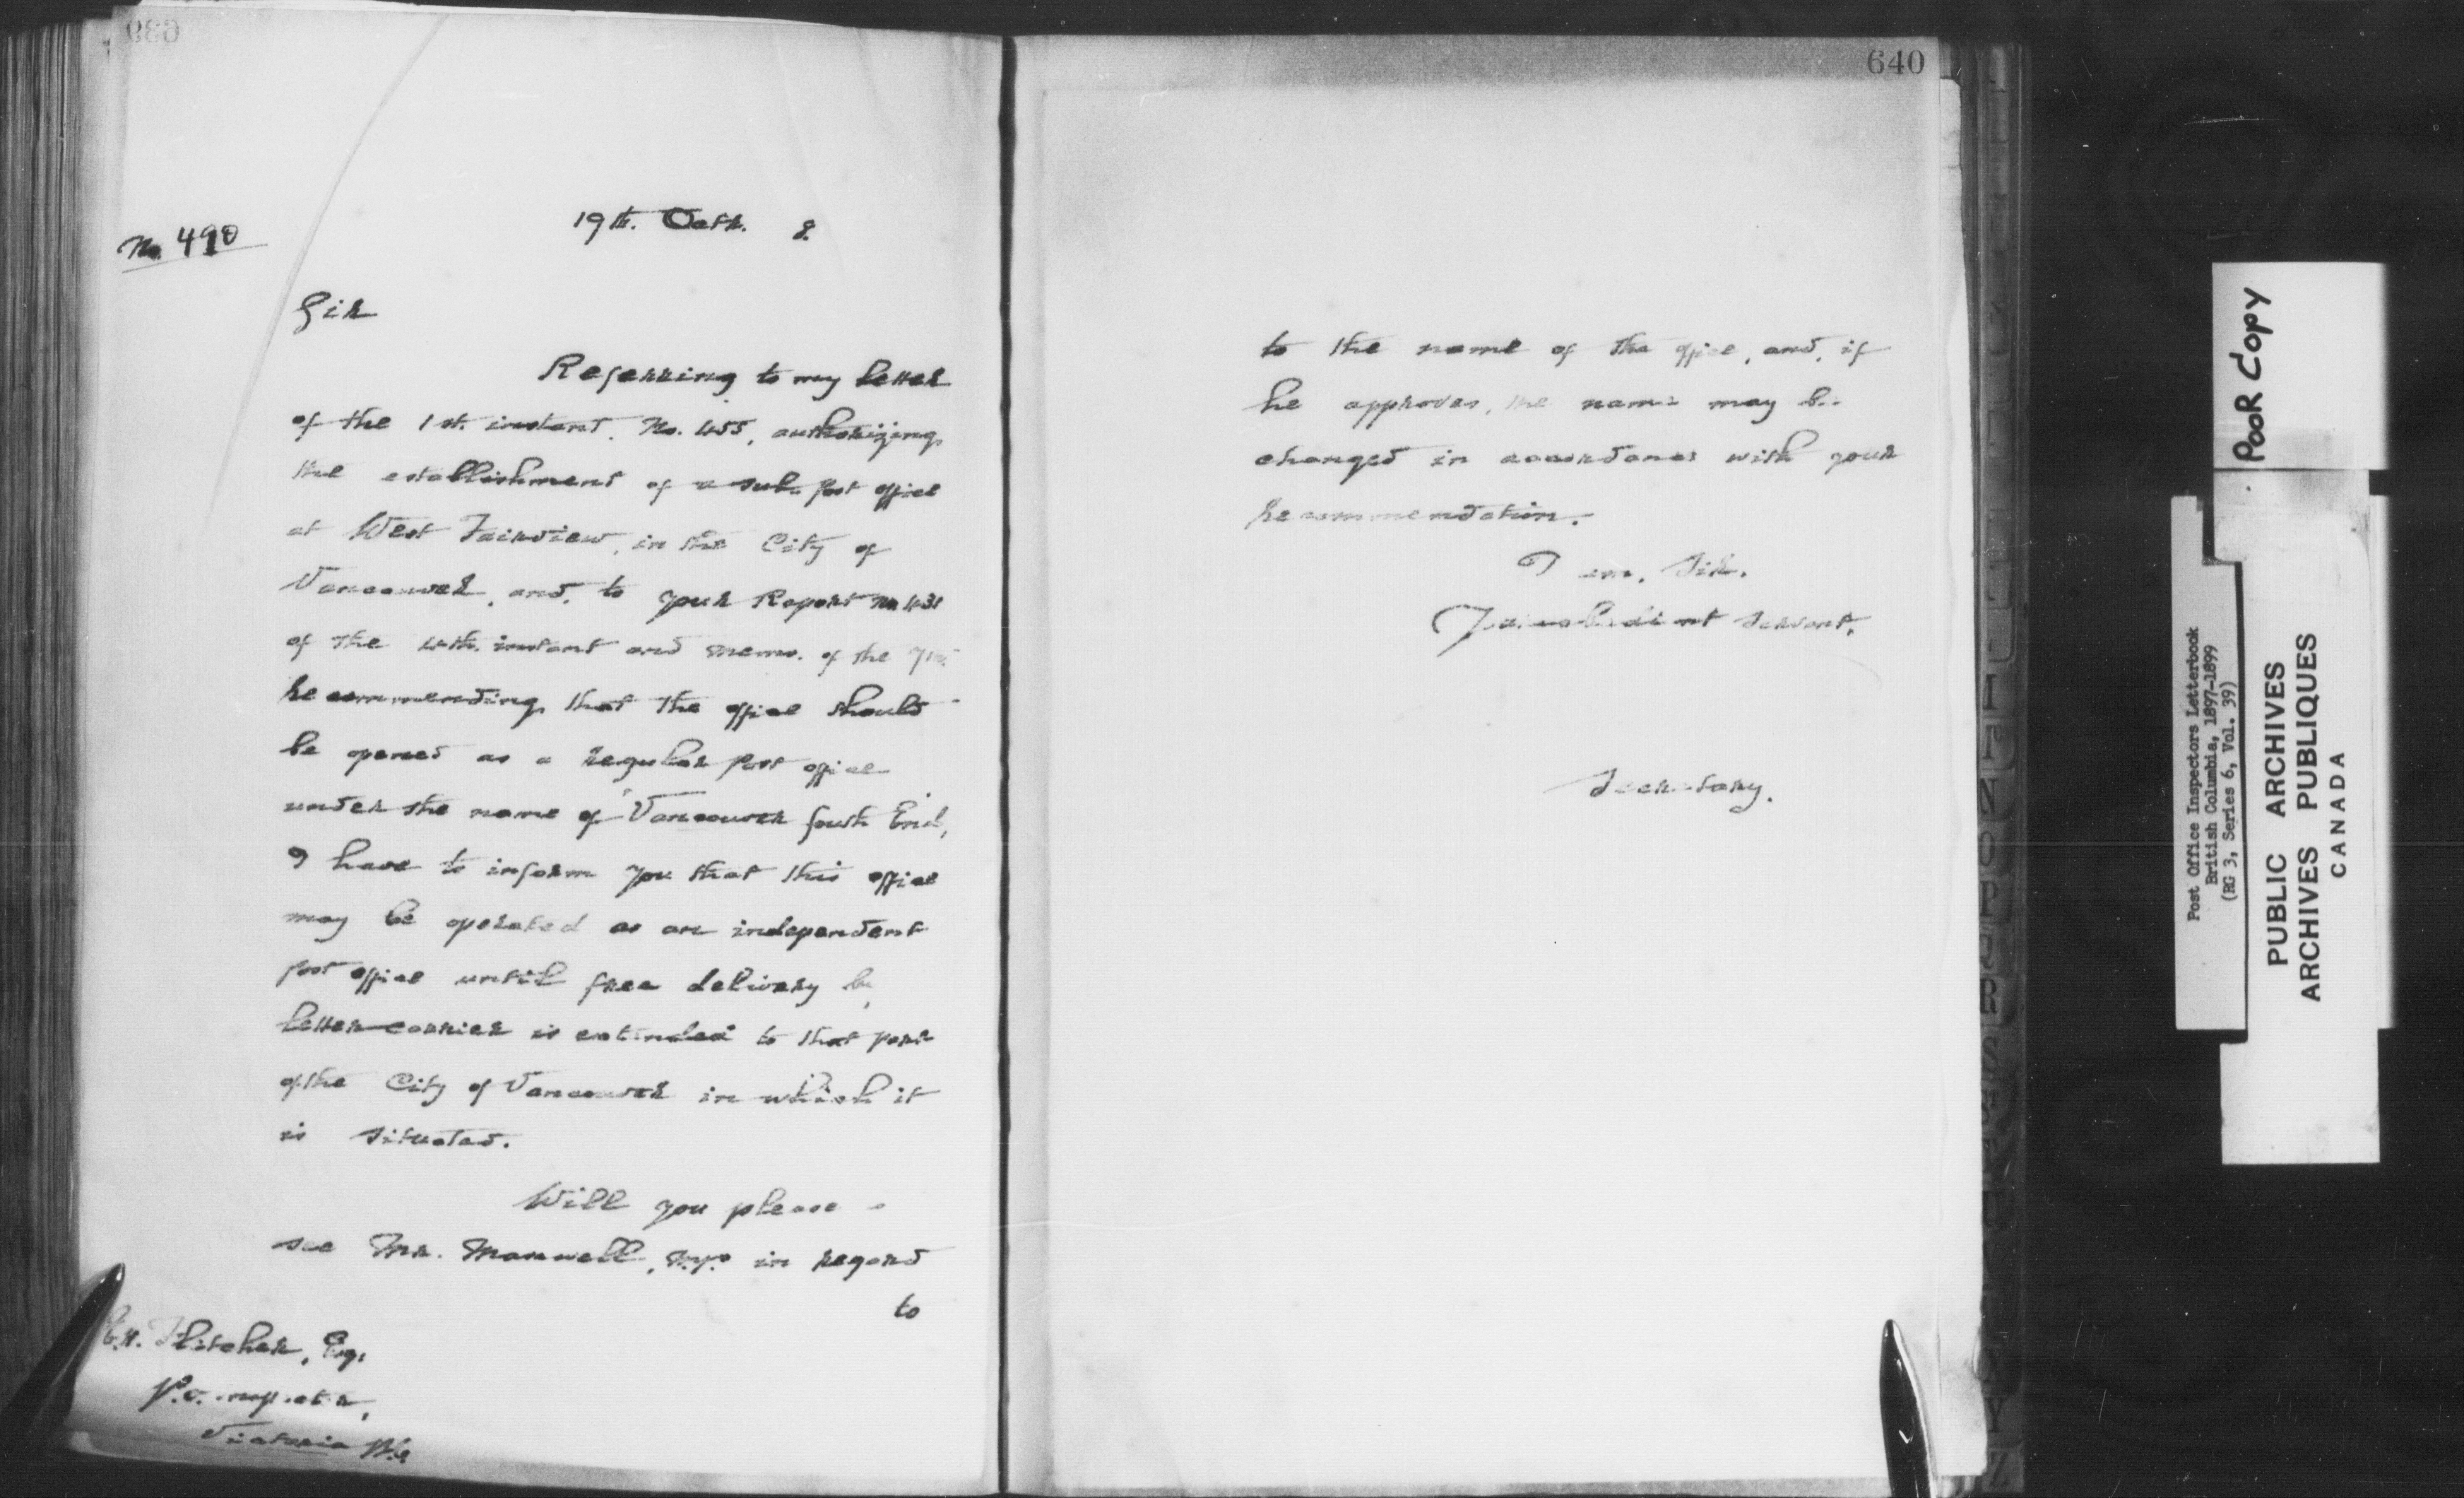 No. 490
19th. Octr. 8.
Sir
Referring to my letter
of the 1st. instant. No. 455, authorizing
the establishment of a sub. post office
at West Fairview, in the City of
Vancouver, and, to your Report No 431
of the 4th. instant and memo. of the
recommending that the office should
be opened as a regular post office
under the name of "Vancouver South End,"
I have to inform you that this office
may be operated as an independent
post office until free delivery by
letter carrier is extended to that part
of the City of Vancouver in which it
is situated.
Will you please
see Mr. Maxwell, M.P. in regard
to
E.H. Fletcher, Esq.
P.O. Inspector,
Victoria B.C.
640
to the name of the office, and, if
he approves, the name may be
changed in accordance with your
recommendation.
I am, Sir.
Your obedient servant,
Secretary.
POOR COPY
Post Office Inspectors Letterbook
British Columbia, 1897-1899
(RG 3, Series 6, Vol. 39)
PUBLIC ARCHIVES
ARCHIVES PUBLIQUES
CANADA